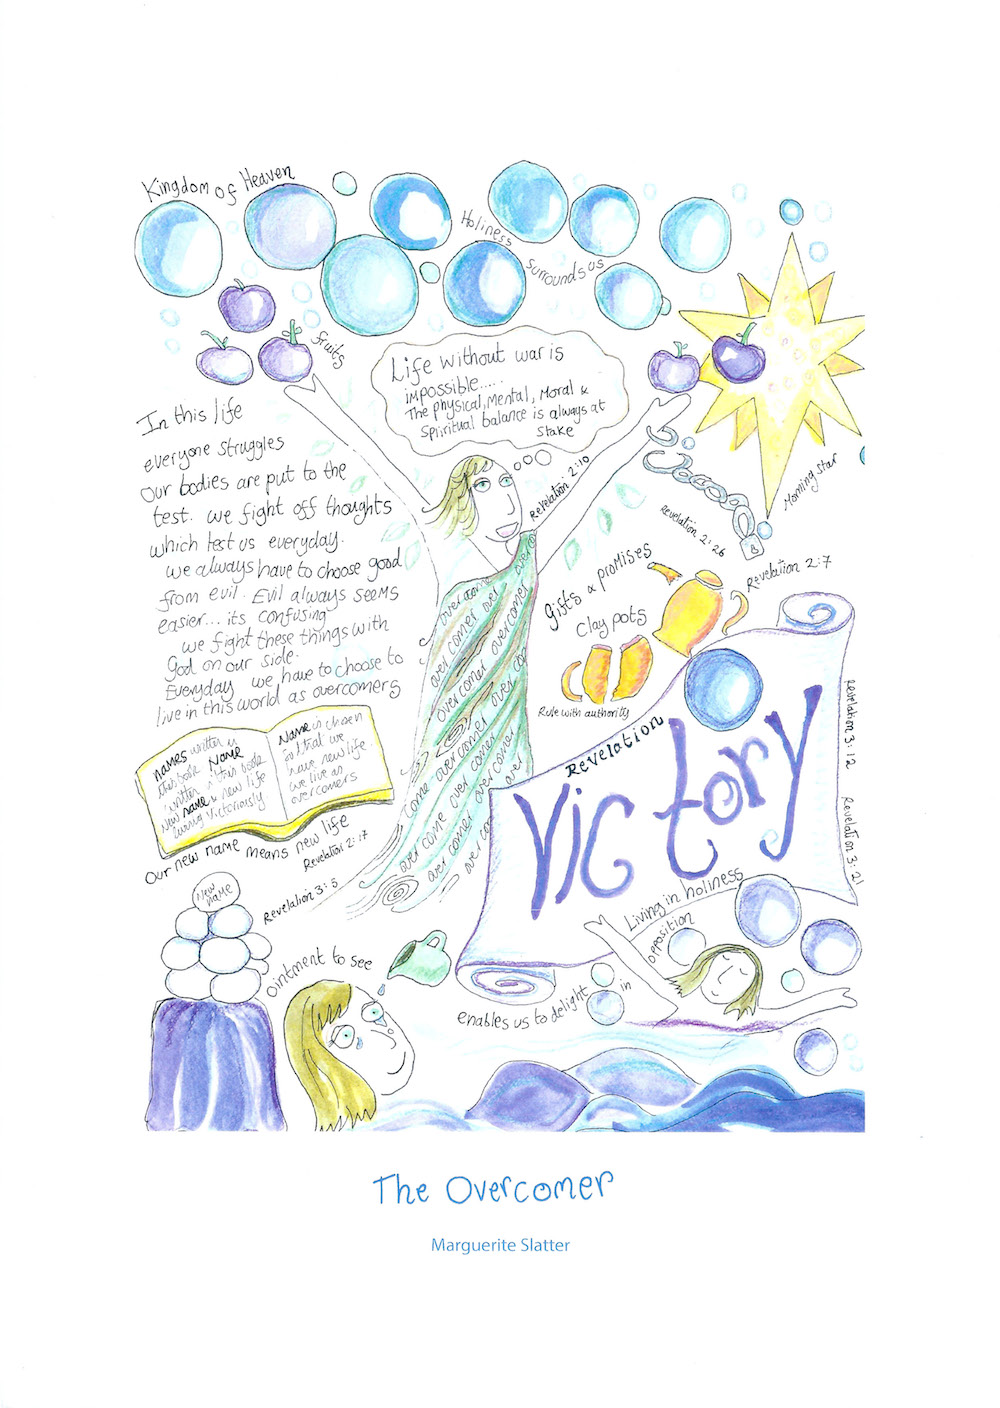 Kingdom of Heaven
Holiness
surrounds us
fruits
Life without war is
impossible.....
The physical, Mental, Moral &
Spiritual balance is always at
stake
In this life
everyone struggles
Our bodies are put to the
test. we fight off thoughts
which test us everyday.
we always have to choose good
from evil. Evil always seems
easier... its confusing
we fight these things with
God on our side.
Everyday we have to choose to
live in this world as overcomers
Revelation 2:10
Morning star
Revelation 2:26
Revelation 2:7
Gifts & promises
Clay pots
Rule with authority
over come over
over comer over
over comer over comer
over comer over comer
over comer over com
over comer over
over comer
come over comer
over come over
over comer
over comer
over com
Names written in
this book Name
written in this book
New name & new life
living Victoriously
Name is chosen
so that we
have new life.
we live as
overcomers
Our new name means new life
Revelation 2:17
Revelation 3:5
New
name
Revelation
Victory
Revelation 3:12
Revelation 3:21
Ointment to see
Living in holiness
enables us to delight in
opposition
The Overcomer
Marguerite Slatter